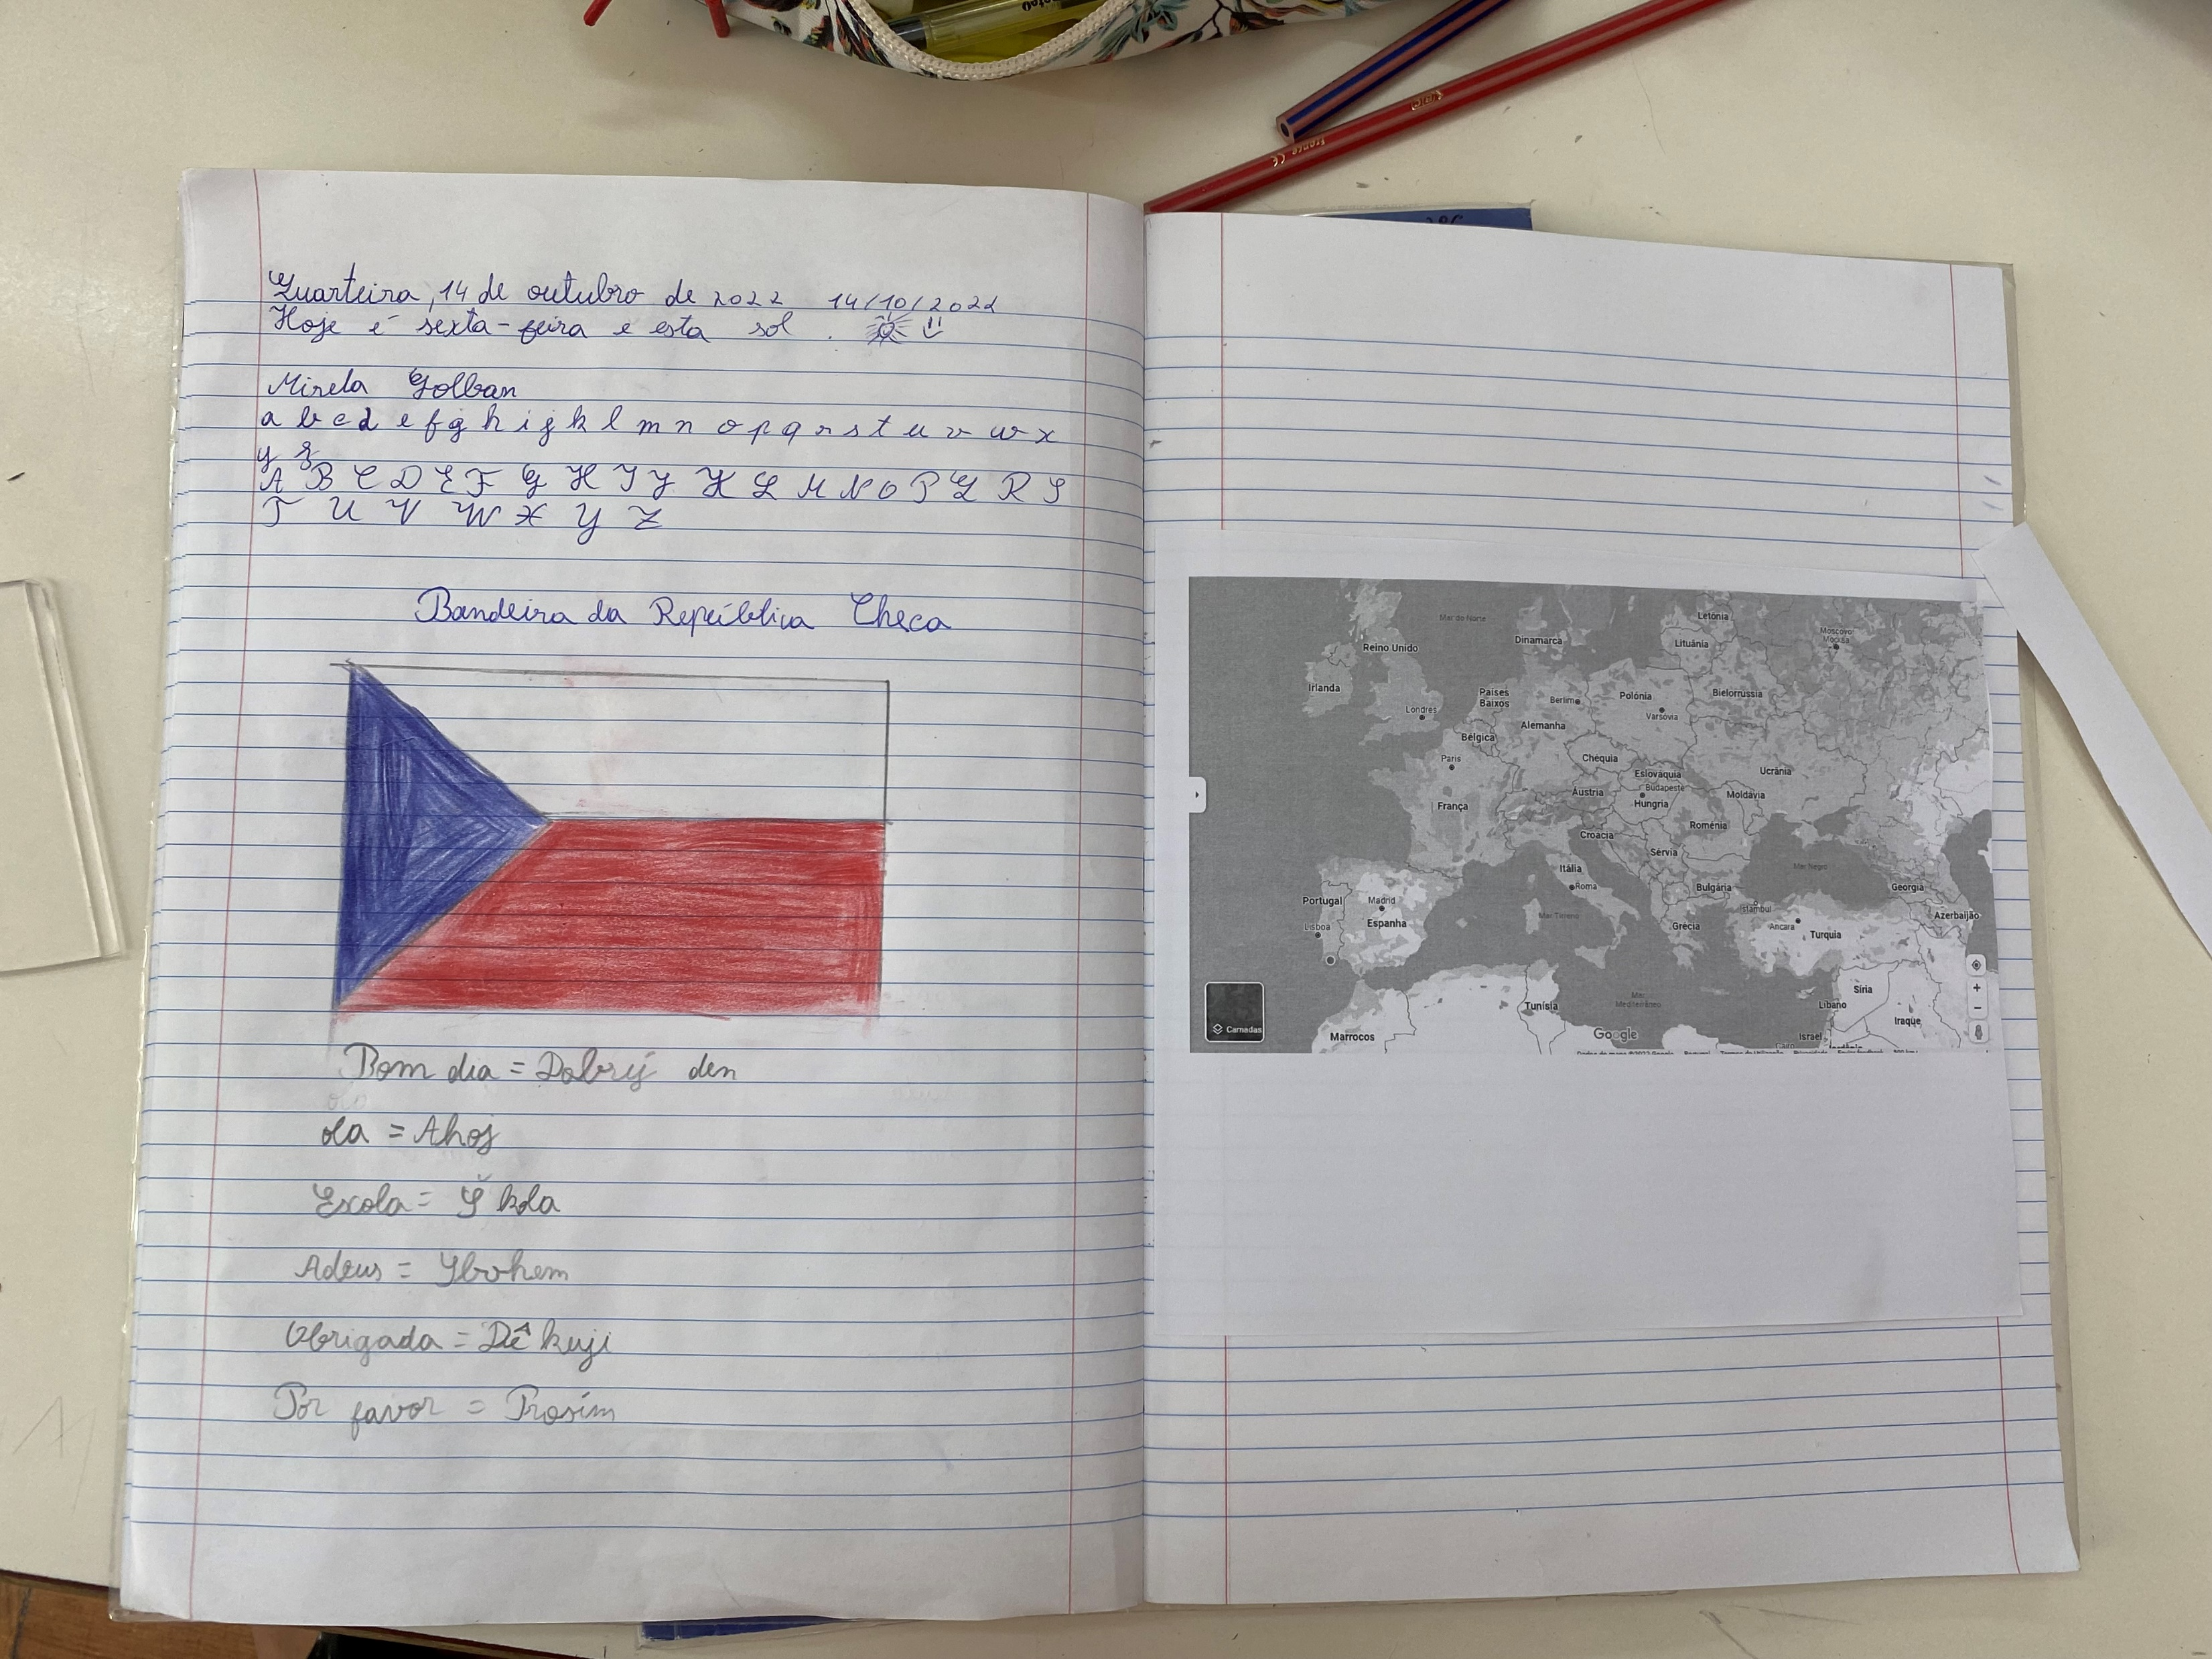 Quarteira, 14 de outubro de 2022 14/10/2022
Hoje é sexta-feira e esta sol .
Mirela Golban
a b c d e f g h i j k l m n o p q r s t u v w x
y z
A B C D E F G H I J K L M N O P Q R S
T U V W X Y Z
Bandeira da República Checa
Bom dia = Dobrý den
ola = Ahoj
Escola = Š kola
Adeus = Sbohem
Obrigada = Dê kuji
Por favor = Prosím
Mar do Norte
Letónia
Moscovo
Москва
Dinamarca
Lituânia
Reino Unido
Irlanda
Países
Baixos
Berlim
Polónia
Bielorrussia
Londres
Varsóvia
Alemanha
Bélgica
Paris
Chéquia
Eslováquia
Ucrânia
Áustria
Budapeste
Hungria
Moldávia
França
Roménia
Croácia
Sérvia
Itália
Mar Negro
Roma
Bulgária
Georgia
Portugal
Madrid
Istambul
Azerbaijão
Mar Tirreno
Lisboa
Espanha
Grécia
Ancara
Turquia
Síria
Mar
Mediterrâneo
Tunísia
Líbano
Iraque
Camadas
Marrocos
Google
Israel
France